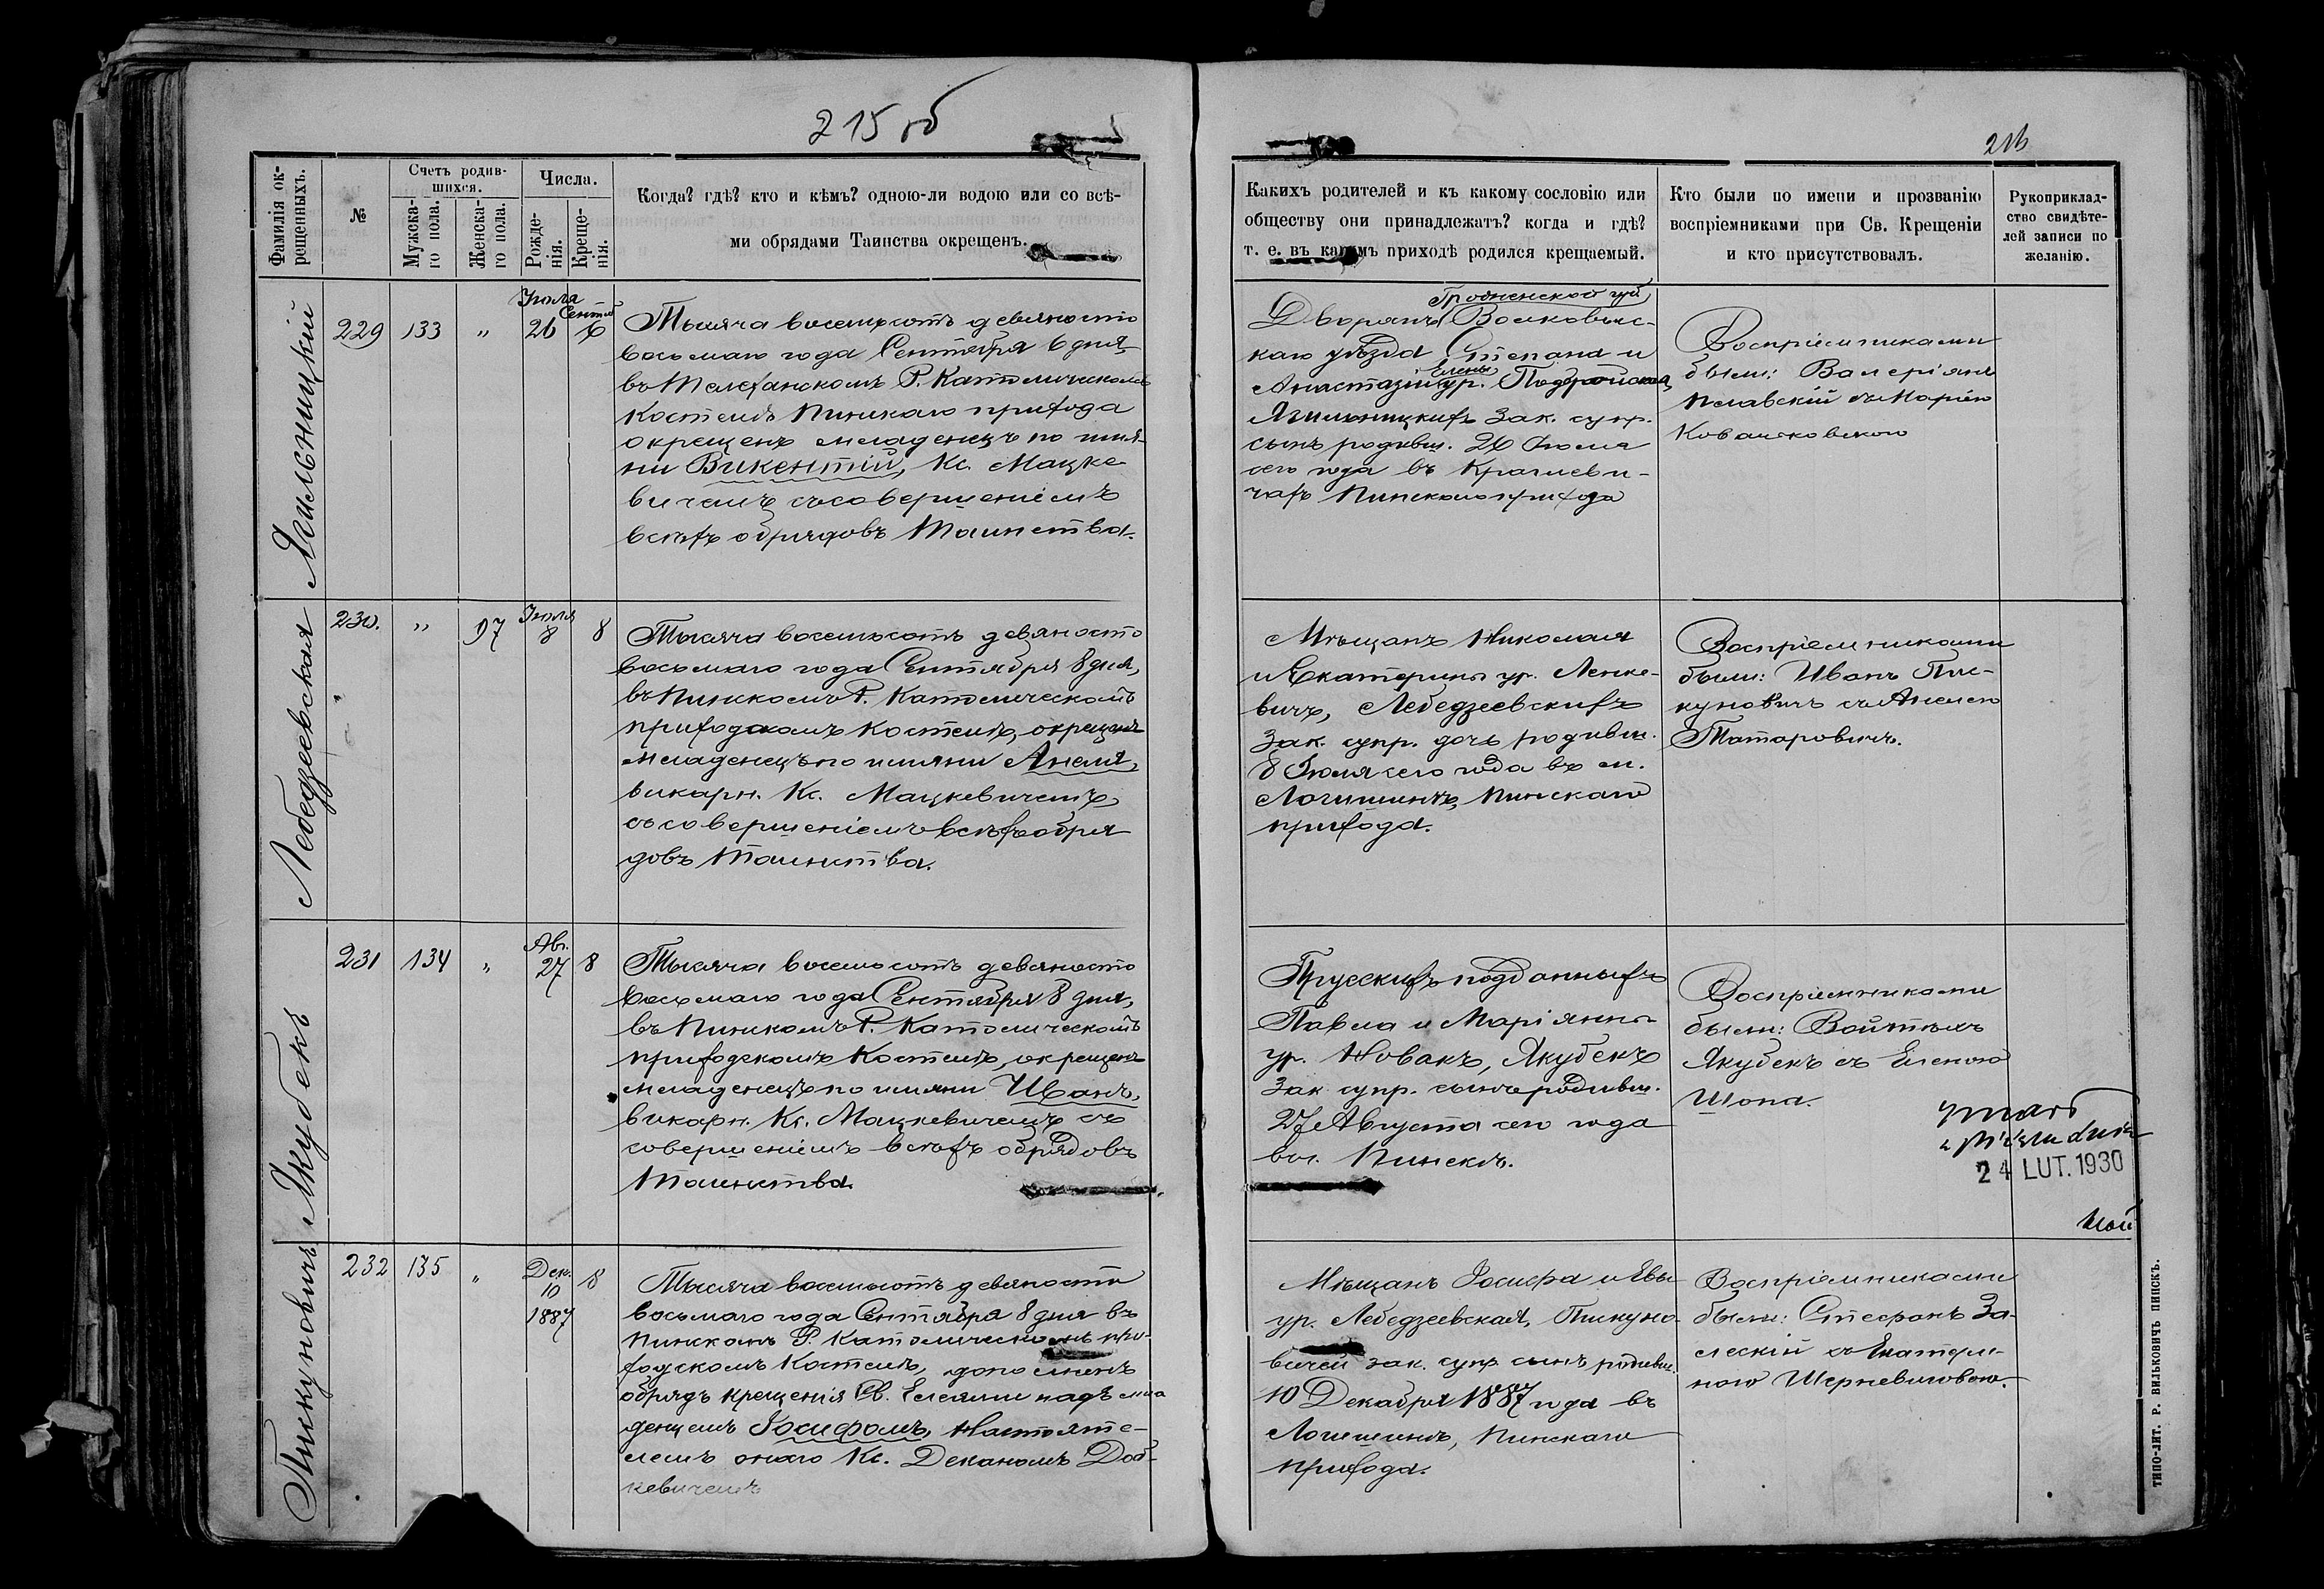 215 об
Фамилія ок-
рещенныхъ.
№
Счетъ родив-
шихся.
Мужска-
го пола.
Женска-
го пола.
Числа.
Рожде-
нія.
Креще-
нія.
Когда? гдѣ? кто и кѣмъ? одною-ли водою или со всѣ-
ми обрядами Таинства окрещенъ.
Ягильницкій
229
133
"
Іюля
26
Сентяб
6
Тысяча восемьсотъ девяносто
восьмаго года Сентября 6 дня
въ Телеханскомъ Р. Католическомъ
Костелѣ Пинскаго прихода
окрещенъ младенецъ по имя-
ни Викентій, Кс. Мацке-
вичемъ съ совершеніемъ
всѣхъ обрядовъ Таинства.
Лебедзеевская
230.
"
97
Іюля
8
8
Тысяча восемьсотъ девяносто
восьмаго года Сентября 8 дня,
въ Пинскомъ Р. Католическомъ
приходскомъ Костелѣ, окрещенъ
младенецъ по имяни Анеля,
викарн. Кс. Мацкевичемъ
съ совершеніемъ всѣхъ обря
довъ Таинства.
Якубекъ
231
134
"
Авг.
27
8
Тысяча восемьсотъ девяносто
восьмаго года Сентября 8 дня,
въ Пинскомъ Р. Католическомъ
приходскомъ Костелѣ, окрещенъ
младенецъ по имяни Иванъ,
викарн. Кс. Мацкевичемъ съ
совершеніемъ всѣхъ обрядовъ
Таинства.
Пикуновичъ
232
135
"
Дек.
10
1887
8
Тысяча восемьсотъ девяносто
восьмаго года Сентября 8 дня въ
Пинскомъ Р. Католическомъ при-
ходскомъ Костелѣ, дополненъ
обрядъ крещенія Св. Елеями надъ мла
денцемъ Іосифомъ, Настояте-
лемъ онаго Кс. Деканомъ Доб-
кевичемъ
216
Какихъ родителей и къ какому сословію или
обществу они принадлежатъ? когда и гдѣ?
т. е. въ какомъ приходѣ родился крещаемый.
Кто были по имени и прозванію
воспріемниками при Св. Крещеніи
и кто присутствовалъ.
Рукоприклад-
ство свидѣте-
лей записи по
желанію.
Гродненской губ
Дворянъ Волковыс-
каго уѣзда Степана и
Елены
Анастазіи ур.
Ягильницкихъ зак. супр.
сынъ родивш. 26 Іюля
сего года въ Краглеви-
чахъ Пинскаго прихода
Воспріемниками
были: Валеріянъ
съ Маріею
Ковалковскою
Мѣщанъ Николая
и Екатерины ур. Ленке-
вичъ, Лебедзеевскихъ
зак. супр. дочь родивш.
8 Іюля сего года въ м.
Логишинѣ, Пинскаго
прихода.
Воспріемниками
были: Иванъ Пи-
куновичъ съ Анелею
Татаровичъ.
Прусскихъ подданныхъ
Павла и Маріянны
ур. Новакъ, Якубекъ
зак. супр. сынъ родивш.
27 Августа сего года
въ г. Пинскѣ.
Воспріемниками
были: Войтѣхъ
Якубекъ съ Еленою
Шопа.
24 LUT. 1930
Мѣщанъ Іосифа и Евы
ур. Лебедзеевская, Пикуно-
вичей зак. супр. сынъ родивш.
10 Декабря 1887 года въ
Логишинѣ, Пинскаго
прихода.
Воспріемниками
были: Стефанъ За-
лескій съ Екатери-
ною Шерневичовою.
ТИПО-ЛИТ. Р. ВИЛЬКОВИЧЪ ПИНСКЪ.